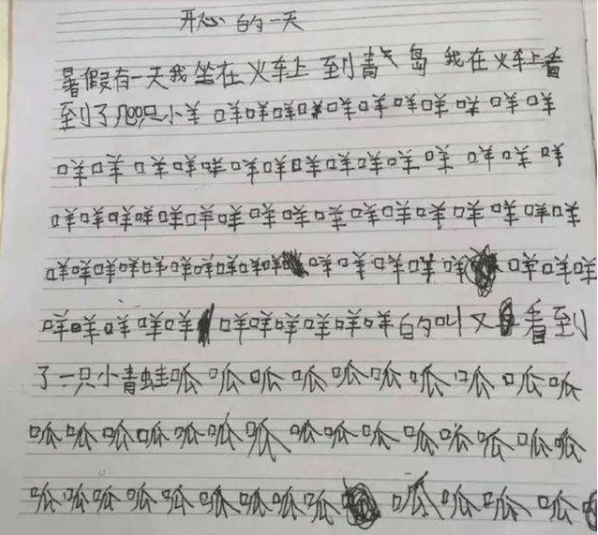 开心的一天
暑假有一天我坐在火车上 到青岛 我在火车上看
到了几只小羊 咩咩咩咩咩咩咩咩咩咩咩
咩咩咩咩咩咩咩咩咩咩咩咩咩咩咩
咩咩咩咩咩咩咩咩咩咩咩咩咩咩咩咩咩
咩咩咩咩咩咩咩咩咩咩咩咩咩咩咩咩咩咩
咩咩咩咩咩咩咩咩咩咩咩的叫又看到
了一只小青蛙呱呱呱呱呱呱呱呱呱呱
呱呱呱呱呱呱呱呱呱呱呱呱呱呱呱
呱呱呱呱呱呱呱呱呱呱呱呱呱